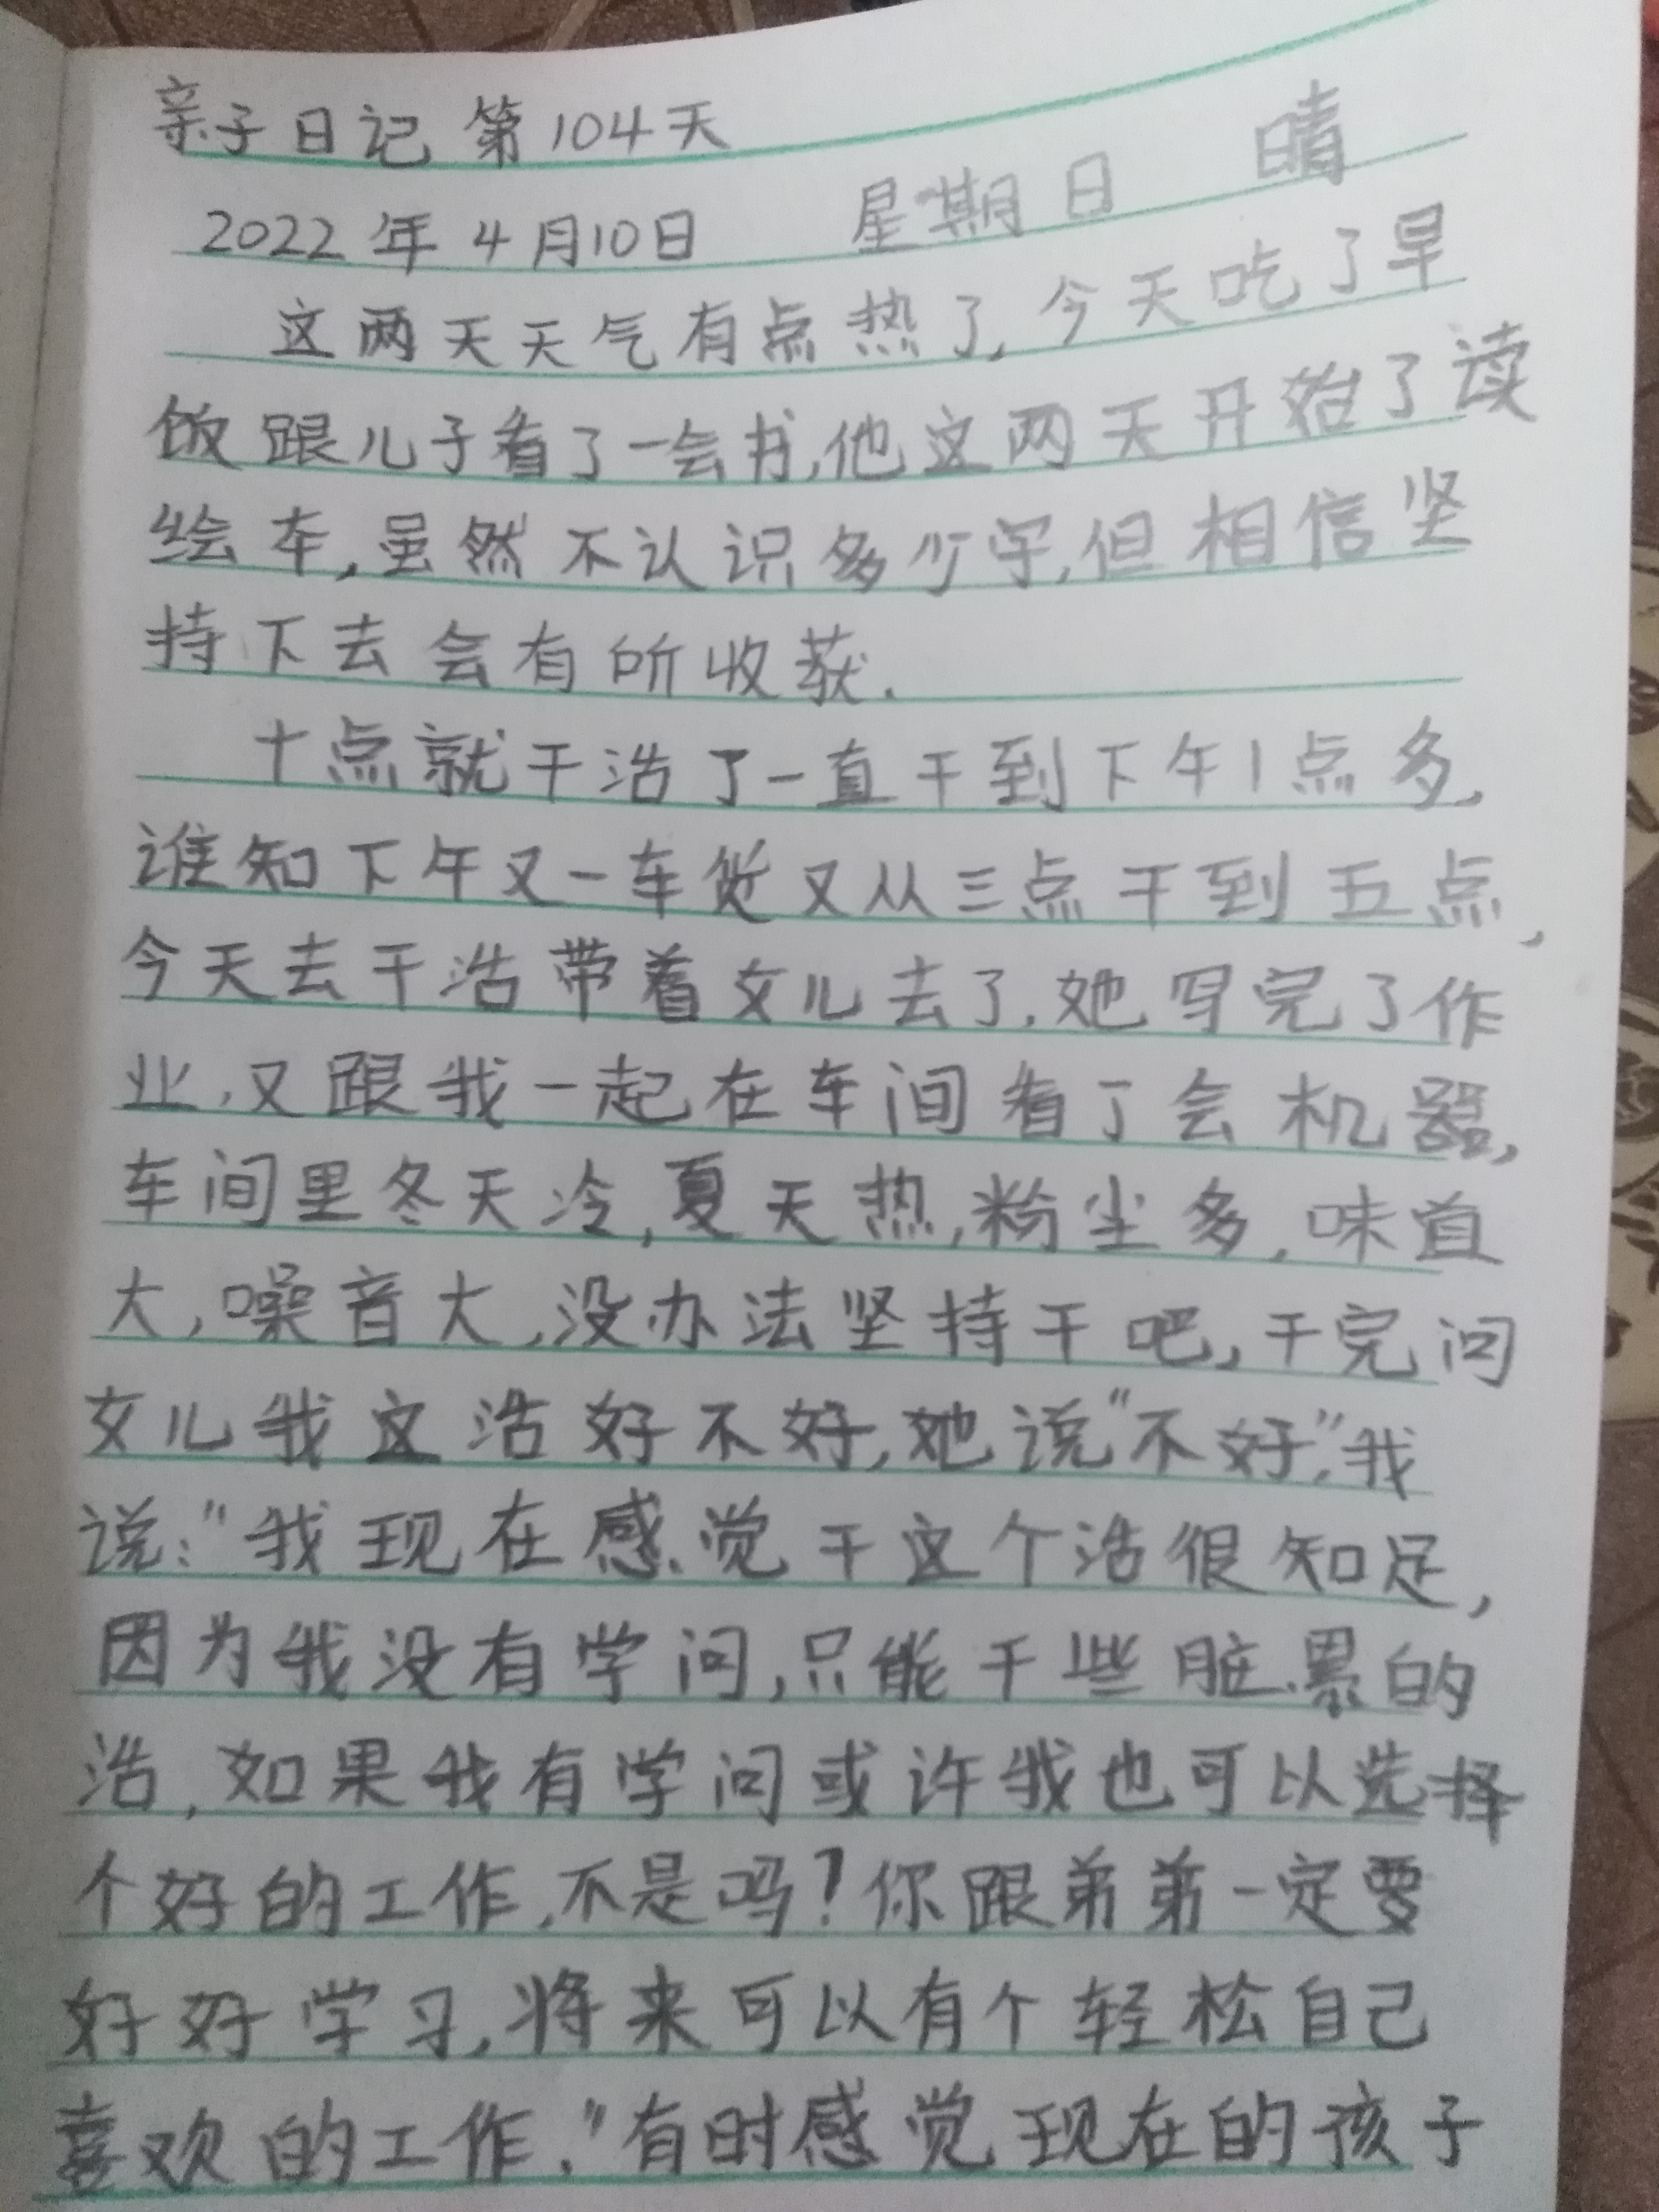 亲子日记 第104天
2022年4月10日 星期日 晴
这两天天气有点热了,今天吃了早
饭跟儿子看了一会书,他这两天开始了读
绘本,虽然不认识多少字,但相信坚
持下去会有所收获.
十点就干活了一直干到下午1点多,
谁知下午又一车货又从三点干到五点,
今天去干活带着女儿去了.她写完了作
业,又跟我一起在车间看了会机器,
车间里冬天冷,夏天热,粉尘多,味道
大,噪音大,没办法坚持干吧,干完问
女儿我这活好不好,她说"不好",我
说:"我现在感觉干这个活很知足,
因为我没有学问,只能干些脏.累的
活,如果我有学问或许我也可以选择
个好的工作,不是吗?你跟弟弟一定要
好好学习,将来可以有个轻松自己
喜欢的工作."有时感觉现在的孩子